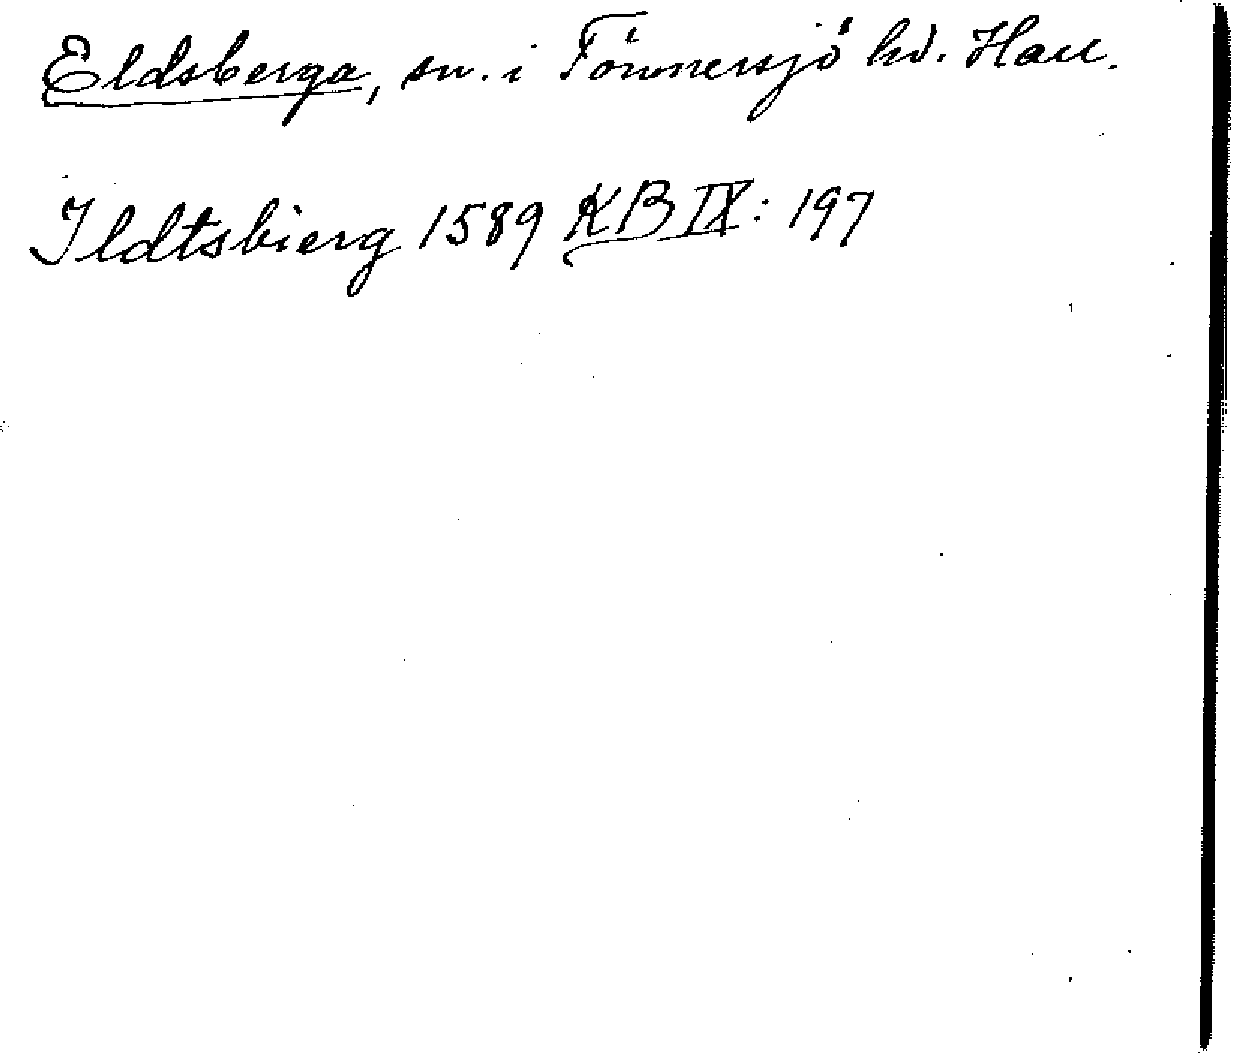 Eldsberga, sn. i Tönnersjö hd. Hall.
Ildtsbierg 1589 KB IX: 197